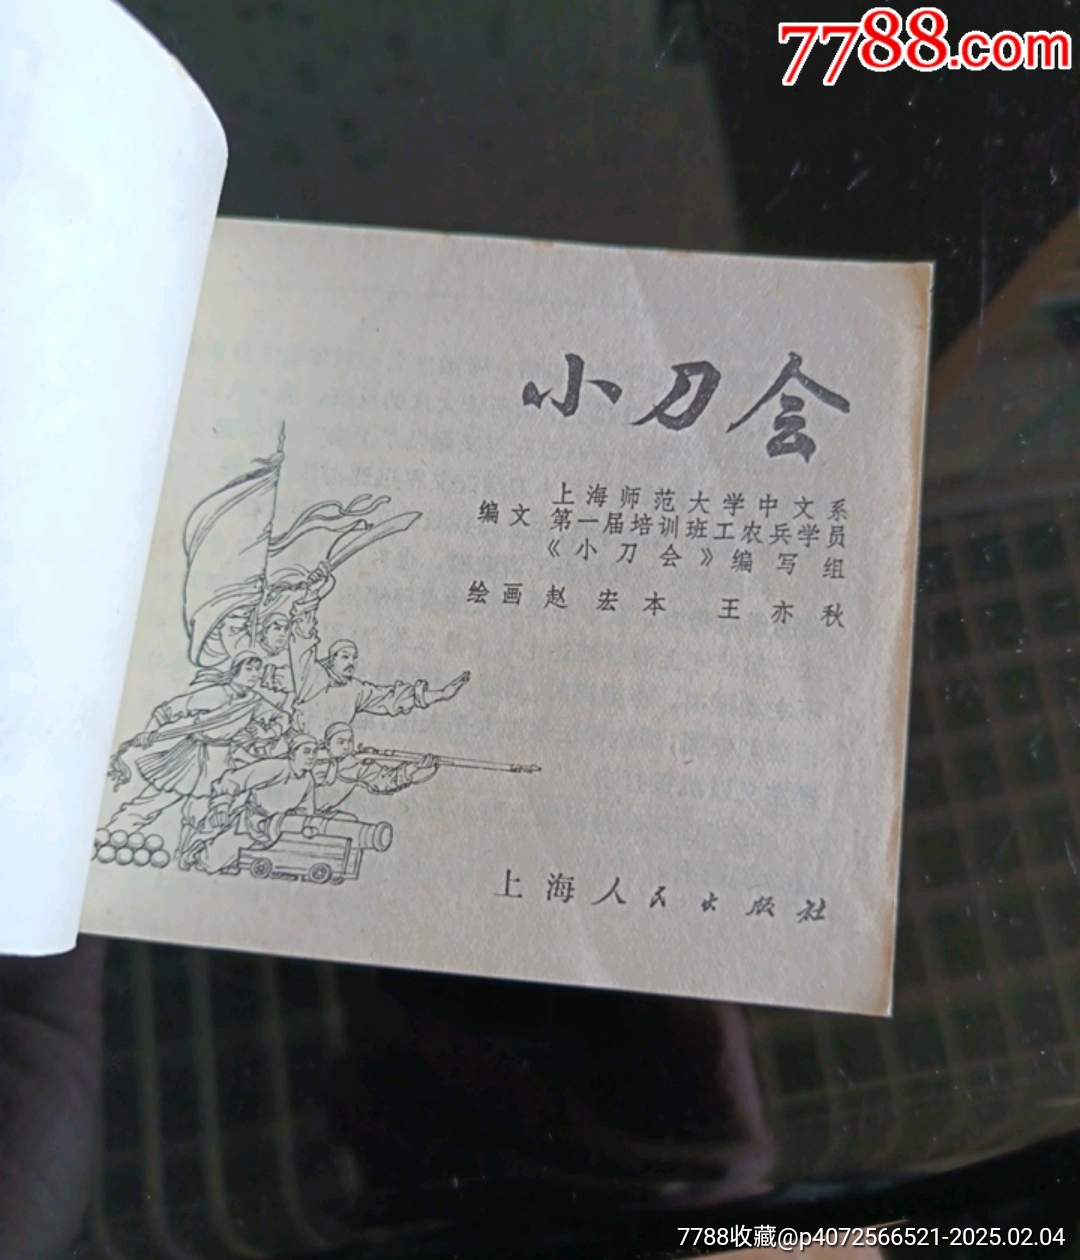 7788.com
小刀会
编文 上海师范大学中文系
第一届培训班工农兵学员
《小刀会》编写组
绘画 赵宏本 王亦秋
上海人民出版社
7788收藏@p4072566521-2025.02.04